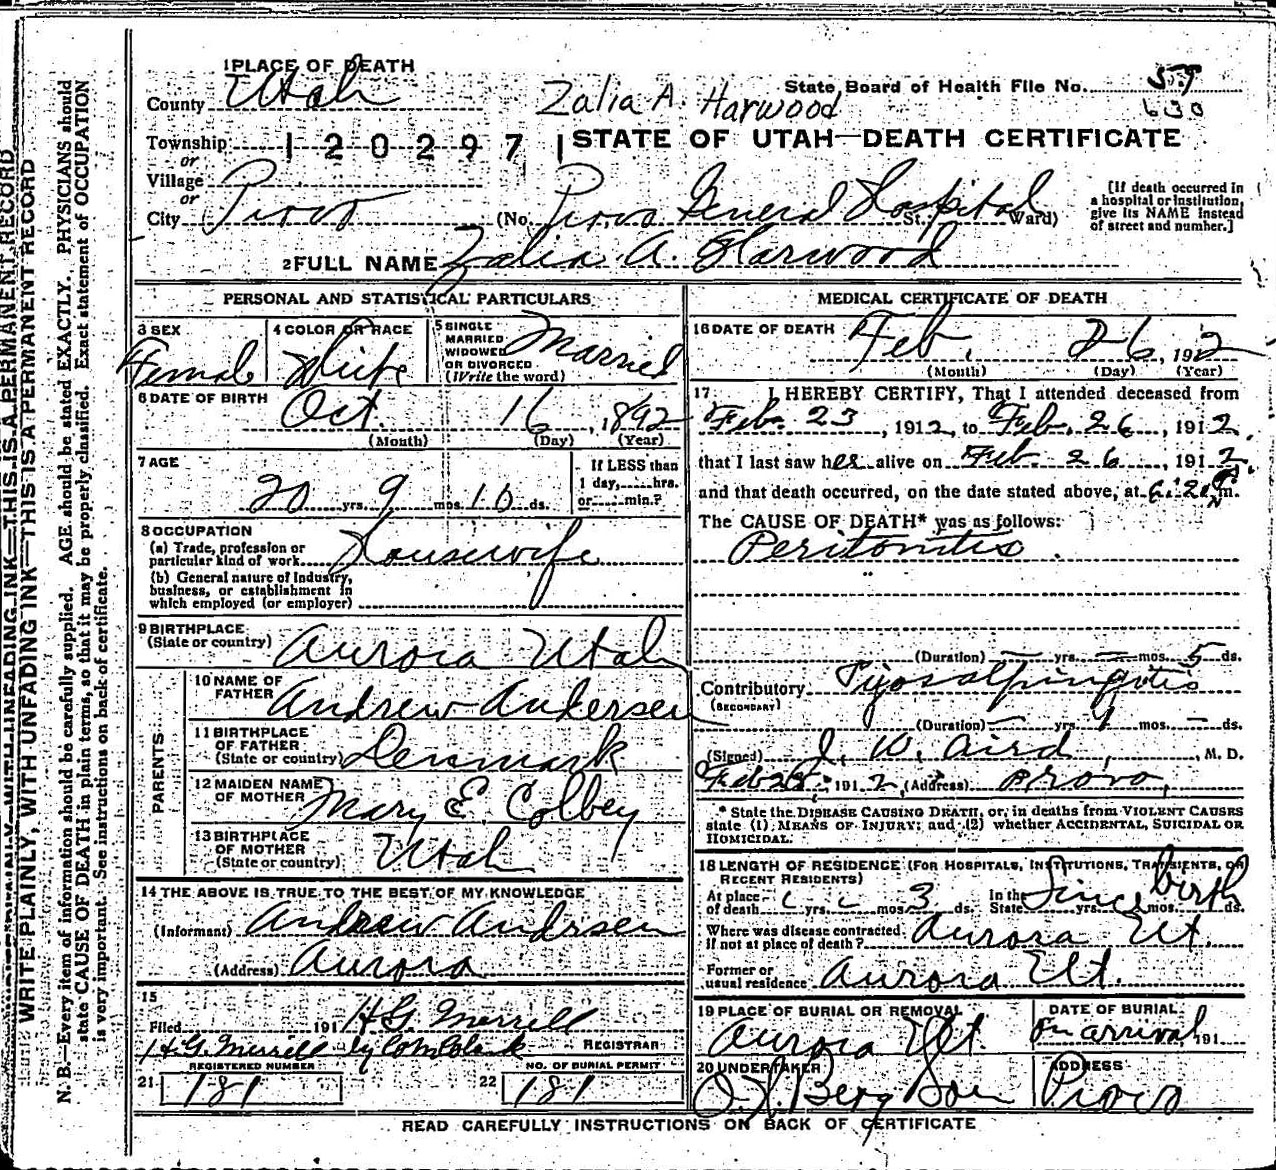 WRITE PLAINLY, WITH UNFADING INK—THIS IS A PERMANENT RECORD
N. B.—Every item of information should be carefully supplied. AGE should be stated EXACTLY. PHYSICIANS should
state CAUSE OF DEATH in plain terms, so that it may be properly classified. Exact statement of OCCUPATION
is very important. See instructions on back of certificate.
1 PLACE OF DEATH
County Utah
Zalia A. Harwood
State Board of Health File No. 59
630
Township 1 2 0 2 9 7 1
STATE OF UTAH—DEATH CERTIFICATE
or
Village
or
City Provo (No. Provo General Hospital St. Ward)
[If death occurred in
a hospital or institution,
give its NAME instead
of street and number.]
2 FULL NAME Zalia A. Harwood
PERSONAL AND STATISTICAL PARTICULARS
3 SEX Female
4 COLOR OR RACE White
5 SINGLE
MARRIED
WIDOWED
OR DIVORCED
(Write the word) Married
6 DATE OF BIRTH
Oct. 16, 1892
(Month) (Day) (Year)
7 AGE
20 yrs. 9 mos. 10 ds.
If LESS than
1 day, hrs.
or min.?
8 OCCUPATION
(a) Trade, profession or
particular kind of work Housewife
(b) General nature of Industry,
business, or establishment in
which employed (or employer)
9 BIRTHPLACE
(State or country) Aurora Utah
PARENTS
10 NAME OF
FATHER Andrew Andersen
11 BIRTHPLACE
OF FATHER
(State or country) Denmark
12 MAIDEN NAME
OF MOTHER Mary E. Colbey
13 BIRTHPLACE
OF MOTHER
(State or country) Utah
14 THE ABOVE IS TRUE TO THE BEST OF MY KNOWLEDGE
(Informant) Andrew Andersen
(Address) Aurora
15
Filed 191 H.G. Merrill
H.G. Merrill REGISTRAR
REGISTERED NUMBER NO. OF BURIAL PERMIT
21 181 22 181
MEDICAL CERTIFICATE OF DEATH
16 DATE OF DEATH
Feb. 26, 1912
(Month) (Day) (Year)
17 I HEREBY CERTIFY, That I attended deceased from
Feb. 23, 1912, to Feb. 26, 1912.
that I last saw her alive on Feb 26, 1912.
and that death occurred, on the date stated above, at 6:20 P.m.
The CAUSE OF DEATH* was as follows:
Peritonitis.
(Duration) — yrs. — mos. 5 ds.
Contributory Pyosalpingitis
(SECONDARY)
(Duration) — yrs. 1 mos. — ds.
(Signed) J. W. Aird, M. D.
Feb 28, 1912 (Address) Provo,
* State the DISEASE CAUSING DEATH, or, in deaths from VIOLENT CAUSES
state (1) MEANS OF INJURY; and (2) whether ACCIDENTAL, SUICIDAL OR
HOMICIDAL.
18 LENGTH OF RESIDENCE (FOR HOSPITALS, INSTITUTIONS, TRANSIENTS, OR
RECENT RESIDENTS)
At place
of death yrs. mos. 3 ds. In the
State Since birth yrs. mos. ds.
Where was disease contracted
if not at place of death? Aurora Ut.
Former or
usual residence Aurora Ut.
19 PLACE OF BURIAL OR REMOVAL
Aurora Ut.
DATE OF BURIAL
On arrival 191
20 UNDERTAKER
O.H. Berg Son
ADDRESS
Provo
READ CAREFULLY INSTRUCTIONS ON BACK OF CERTIFICATE